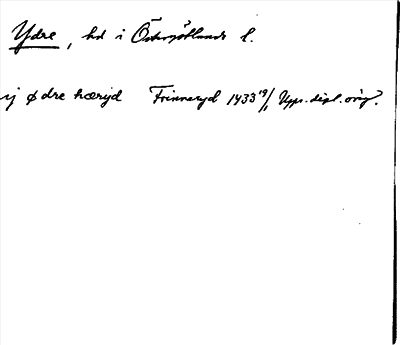 Ydre, hd i Östergötlands l.
ij ødre hæriid Frinneryd 1433 19/1 Upps. dipl. orig.